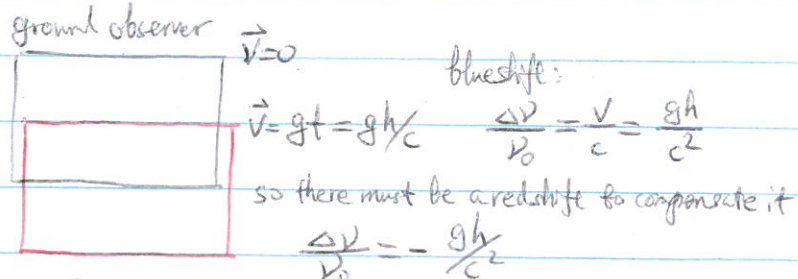 ground observer
v⃗=0
blueshift:
v⃗=gt=gh/c Δν/ν₀ = v/c = gh/c²
so there must be a redshift to compensate it
Δν/ν₀ = - gh/c²